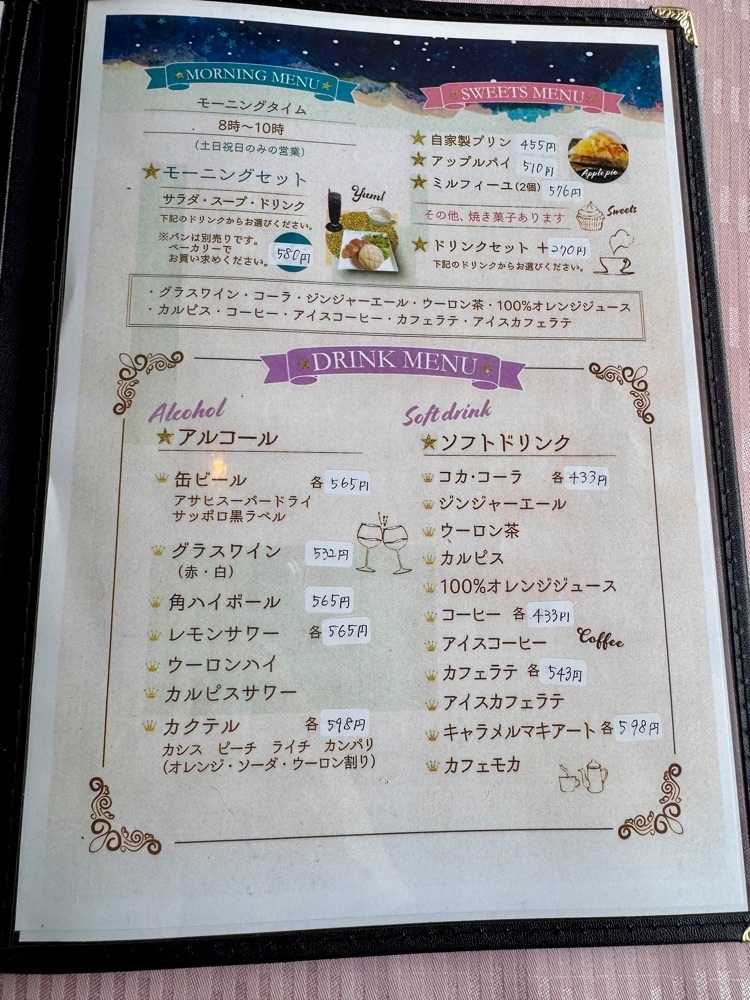 MORNING MENU
モーニングタイム
8時～10時
(土日祝日のみの営業)
モーニングセット
サラダ・スープ・ドリンク
下記のドリンクからお選びください。
※パンは別売りです。
ベーカリーで
お買い求めください。
580円
Yum!
SWEETS MENU
自家製プリン 455円
アップルパイ 510円
ミルフィーユ(2個) 576円
Apple pie
その他、焼き菓子あります
Sweets
ドリンクセット +270円
下記のドリンクからお選びください。
・グラスワイン・コーラ・ジンジャーエール・ウーロン茶・100%オレンジジュース
・カルピス・コーヒー・アイスコーヒー・カフェラテ・アイスカフェラテ
DRINK MENU
Alcohol
アルコール
缶ビール 各565円
アサヒスーパードライ
サッポロ黒ラベル
グラスワイン 532円
(赤・白)
角ハイボール 565円
レモンサワー 各565円
ウーロンハイ
カルピスサワー
カクテル 各598円
カシス ピーチ ライチ カンパリ
(オレンジ・ソーダ・ウーロン割り)
Soft drink
ソフトドリンク
コカ・コーラ 各433円
ジンジャーエール
ウーロン茶
カルピス
100%オレンジジュース
コーヒー 各433円
アイスコーヒー
Coffee
カフェラテ 各543円
アイスカフェラテ
キャラメルマキアート 各598円
カフェモカ